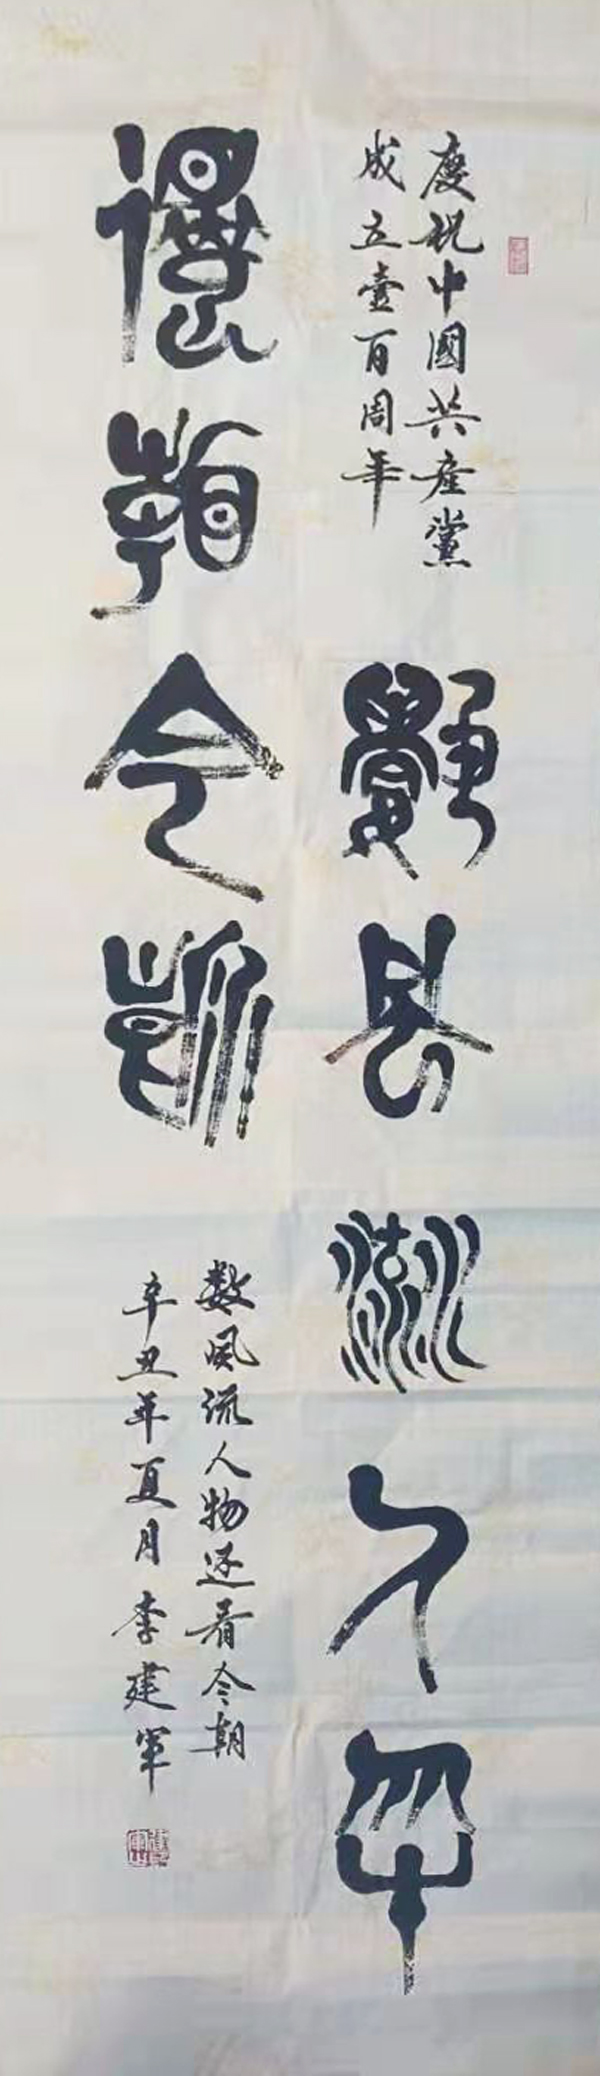 慶祝中國共産黨
成立壹百周年
數風流人物
還看今朝
数風流人物还看今朝
辛丑年夏月李建軍